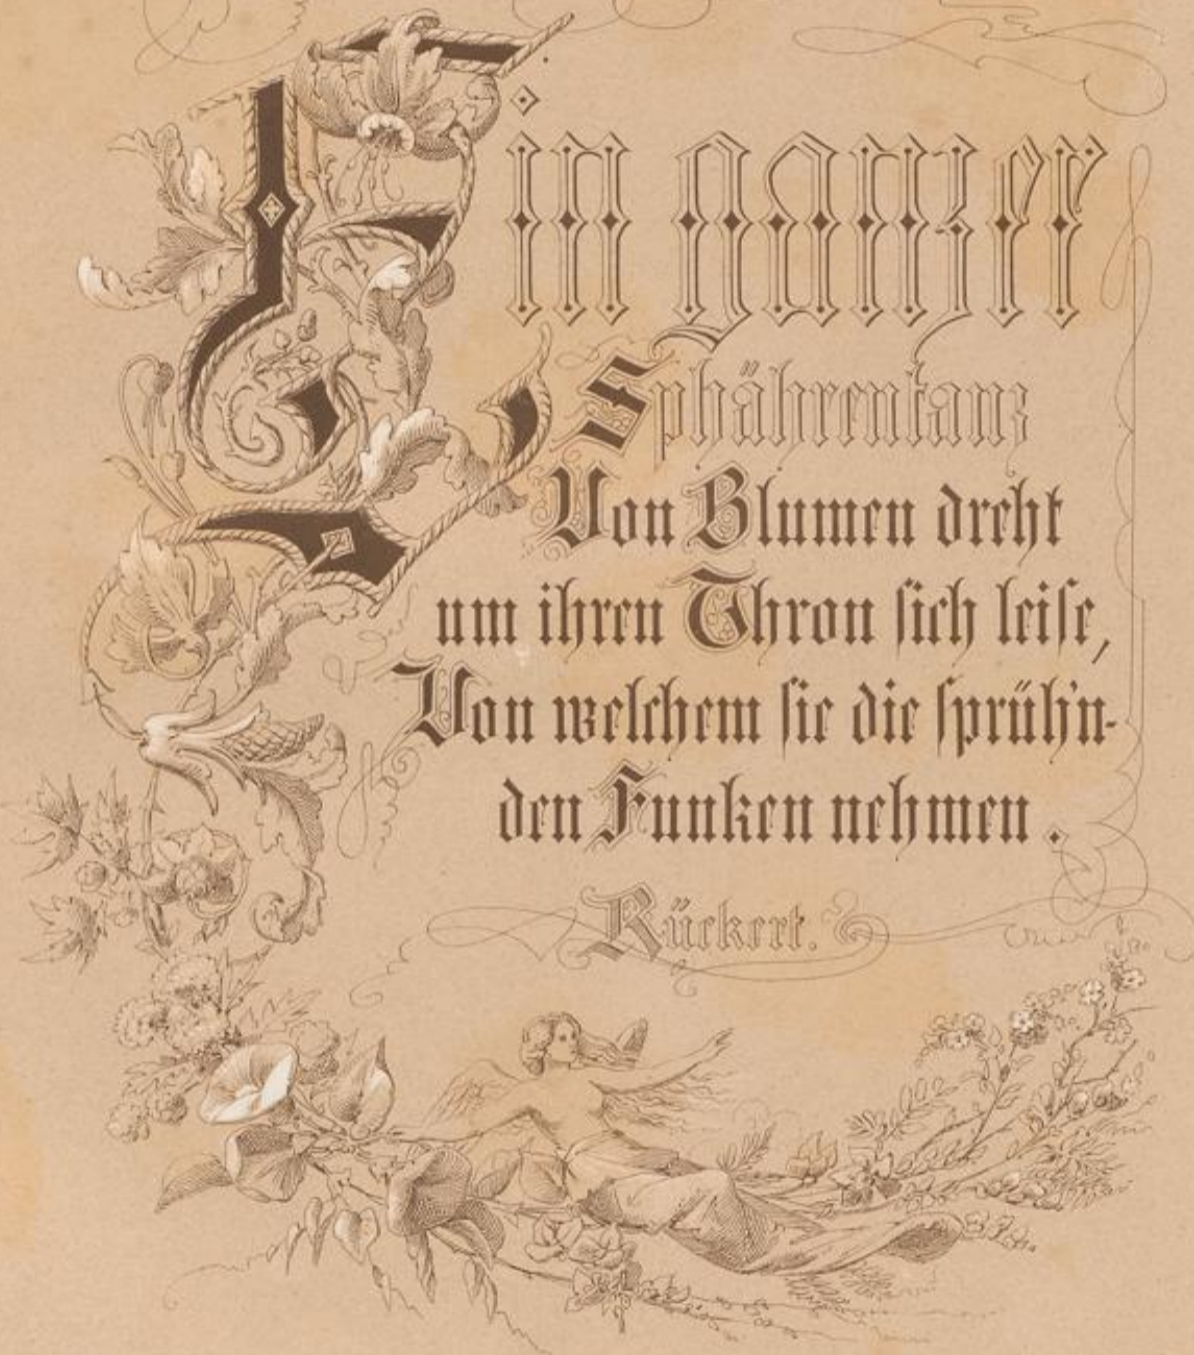 Ein ganzer
Sphährentanz
Von Blumen dreht
um ihren Thron sich leise,
Von welchem sie die sprüh'n-
den Funken nehmen.
Rückert.